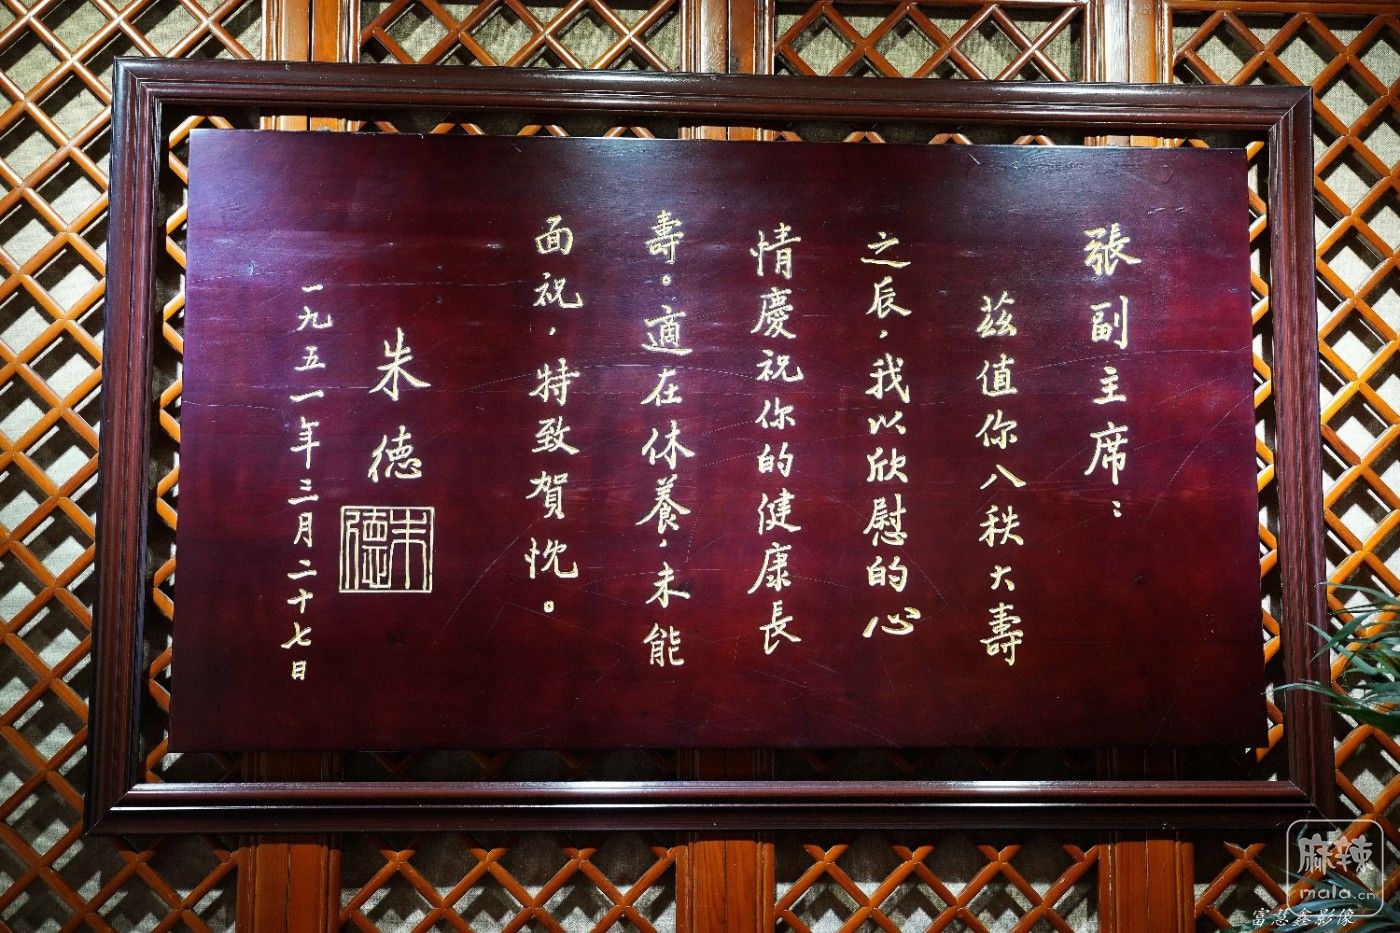 張副主席：
茲值你八秩大壽
之辰，我以欣慰的心
情慶祝你的健康長
壽。適在休養，未能
面祝，特致賀忱。
朱德
朱德
一九五一年三月二十七日
麻辣
mala.cn
富慈鑫影像